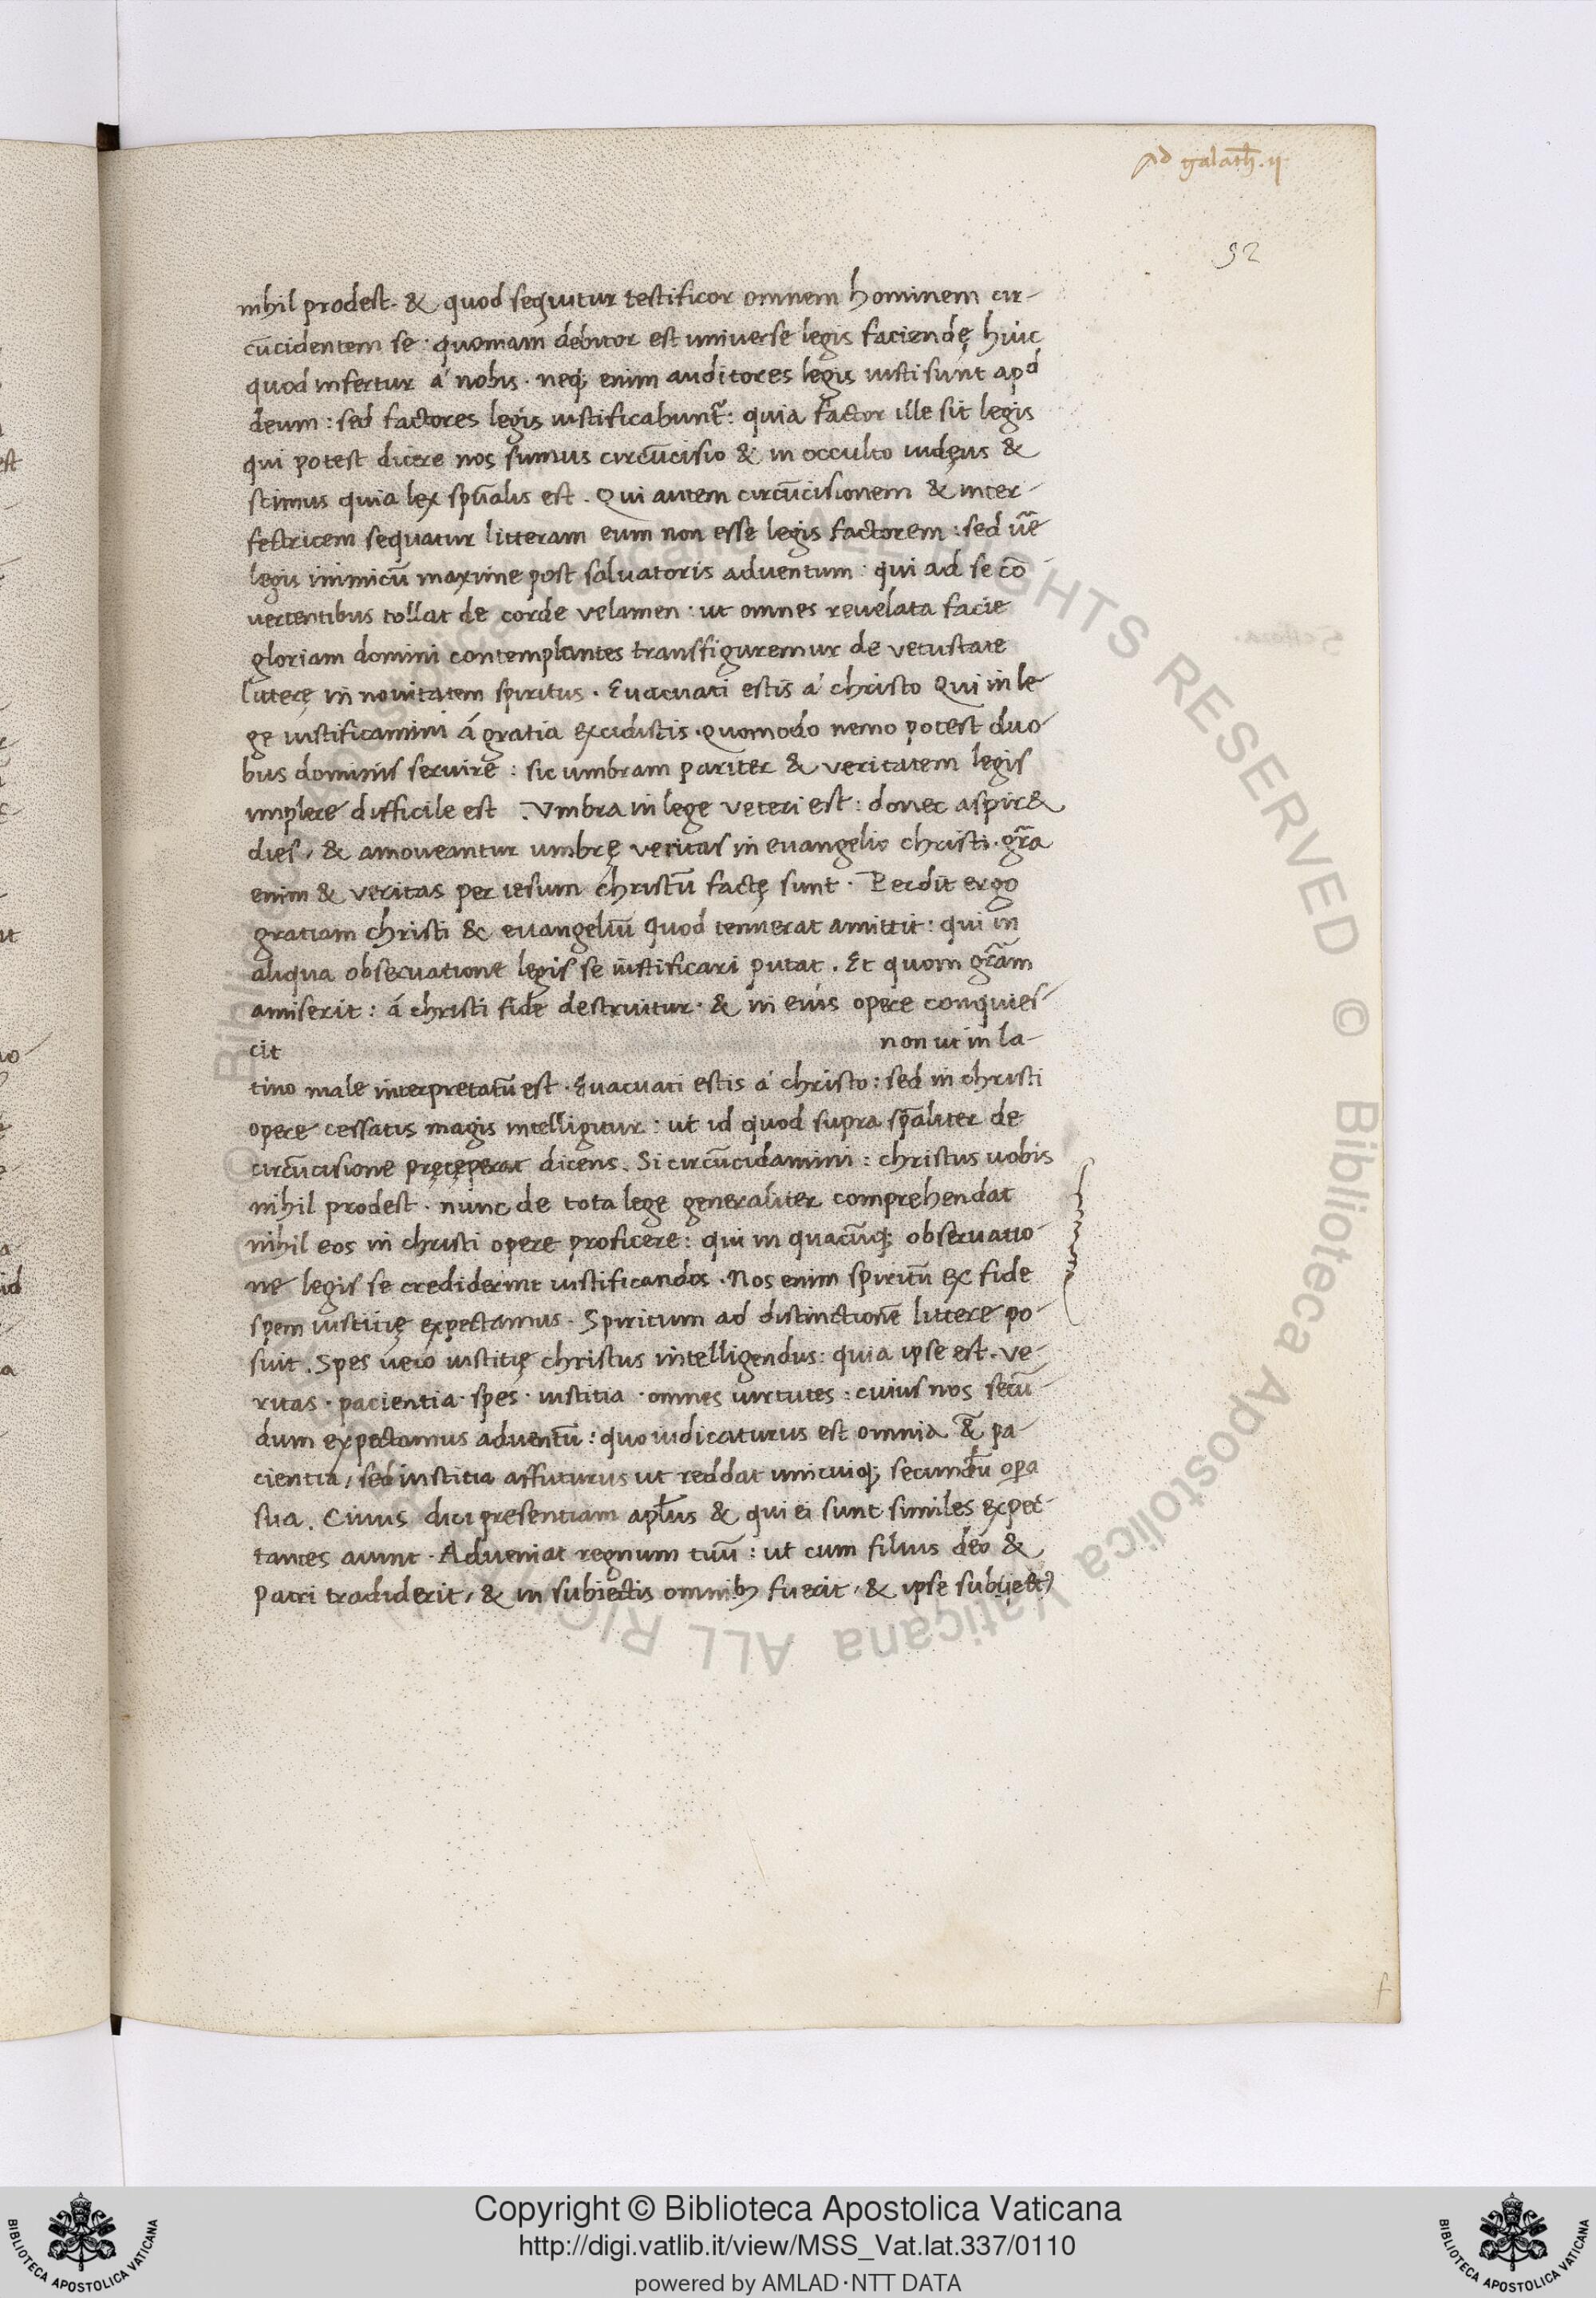 Ad galath̄. ij
52
nihil prodest. & quod sequitur testificor omnem hominem cir-
cūcidentem se: quoniam debitor est universe legis faciendę huic
quod infertur á nobis. neq; enim auditores legis iusti sunt apd
deum: sed factores legis iustificabunt̃: quia factor ille sit legis
qui potest dicere nos sumus circūcisio & in occulto iudęus &
scimus quia lex spūalis est. Qui autem circūcisionem & inter-
fectricem sequatur litteram eum non esse legis factorem: sed ūe
legis inimicū maxime post salvatoris adventum: qui ad se cō
vertentibus tollat de corde velamen: ut omnes revelata facie
gloriam domini contemplantes transfiguremur de vetustate
litterę in novitatem spiritus. Evacuati estis á christo Qui in le
ge iustificamini á gratia excidistis. Quomodo nemo potest duo-
bus dominis servire: sic umbram pariter & veritatem legis
implere difficile est. Umbra in lege veteri est: donec aspir&
dies, & amoveantur umbrę veritas in evangelio christi. gr̃a
enim & veritas per iesum christū factę sunt. Perdit ergo
gratiam christi & evangeliū quod tenuerat amittit: qui in
aliqua observatione legis se iustificari putat. Et quom gr̃am
amiserit: á christi fide destruitur. & in eius opere conquies-
cit non ut in la-
tino male interpretatū est. Evacuati estis á christo: sed in christi
opere cessatis magis intelligitur: ut id quod supra sp̄aliter de
circūcisione pręcęperat dicens. Si circūcidamini: christus vobis
nihil prodest. nunc de tota lege generaliter comprehendat
nihil eos in christi opere proficere: qui in quacūq; observatio-
ne legis se crediderint iustificandos. Nos enim spiritū ex fide
spem iustitię expectamus. Spiritum ad distinctionē littere po-
suit. Spes vero iustitię christus intelligendus: quia ipse est. ve-
ritas. pacientia. spes. iustitia. omnes virtutes: cuius nos secū-
dum expectamus adventū: quo iudicaturus est omnia & pa-
cientia, sed iustitia affuturus ut reddat unicuiq; secundū opa
sua. Cuius dici presentiam aplūs & qui ei sunt similes expec-
tantes aiunt. Adveniat regnum tuū: ut cum filius deo &
patri tradiderit, & in subiectis omnib; fuerit, & ipse subiect9
f
Copyright © Biblioteca Apostolica Vaticana
http://digi.vatlib.it/view/MSS_Vat.lat.337/0110
powered by AMLAD·NTT DATA
BIBLIOTECA APOSTOLICA VATICANA
BIBLIOTECA APOSTOLICA VATICANA